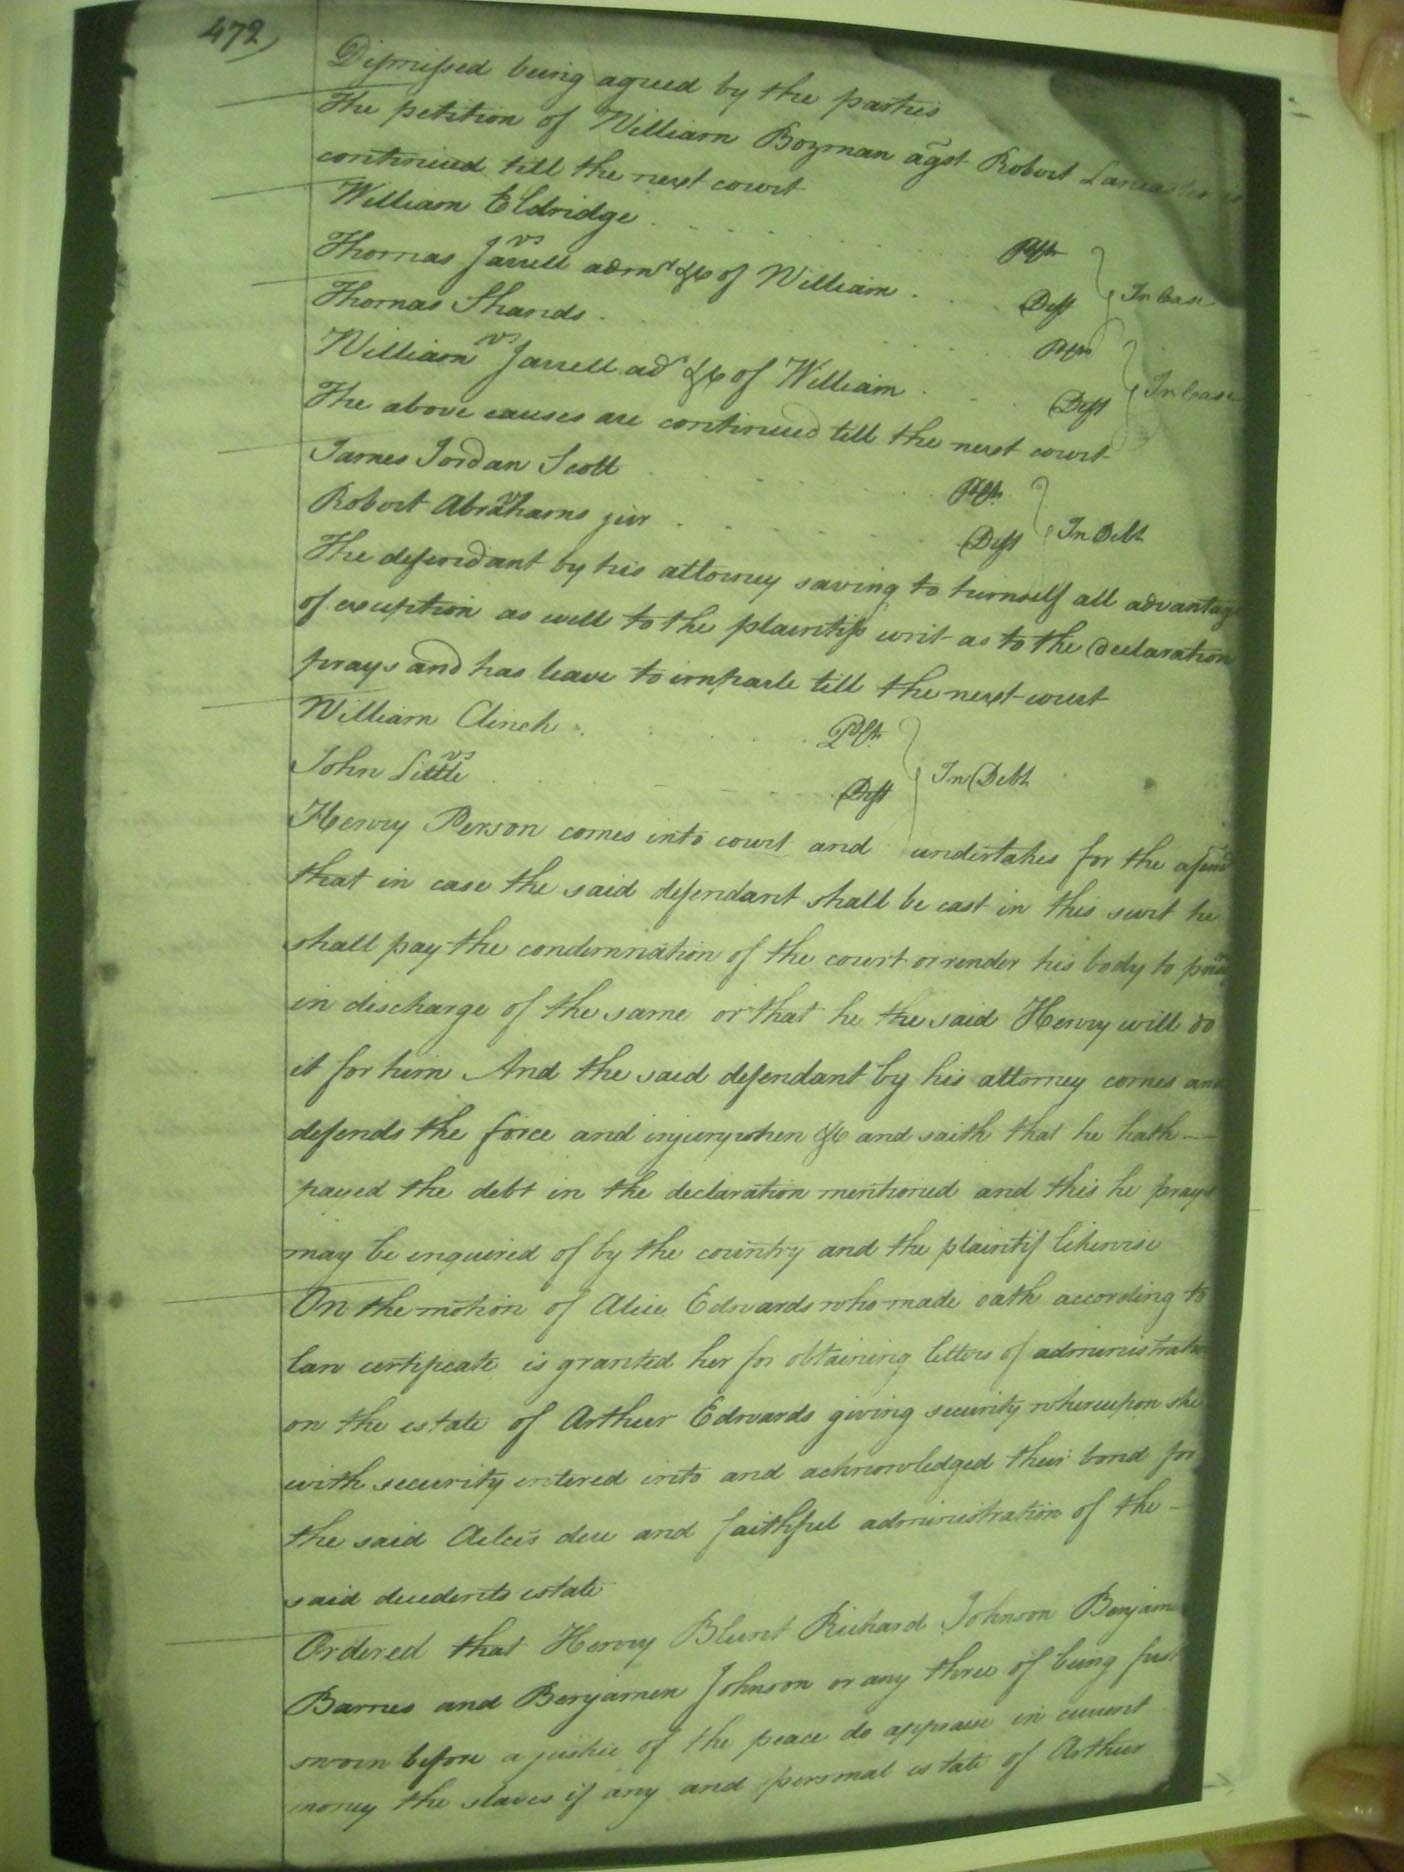 472)
Dismissed being agreed by the parties
The petition of William Bozman agst Robert Lancaster is
continued till the next court
William Eldridge . . . . . . Pltf
vs
Thomas Jarrell admr &c of William . . . Deft } In Case
Thomas Shands . . . . . . Pltf
vs
William Jarrell adr &c of William . . . Deft } In Case
The above causes are continued till the next court
James Jordan Scott . . . . . . Pltf
vs
Robert Abrahams jur . . . . . . Deft } In Debt
The defendant by his attorney saving to himself all advantage
of exception as well to the plaintifs writ as to the declaration
prays and has leave to imparle till the next court
William Clinch . . . . . Pltf
vs
John Little . . . . . Deft } In Debt
Henry Person comes into court and undertakes for the
that in case the said defendant shall be cast in this suit he
shall pay the condemnation of the court or render his body to
in discharge of the same or that he the said Henry will do
it for him And the said defendant by his attorney comes and
defends the force and injury when &c and saith that he hath —
payed the debt in the declaration mentioned and this he prays
may be enquired of by the country and the plaintif likewise
On the motion of Alice Edwards who made oath according to
law certificate is granted her for obtaining letters of administration
on the estate of Arthur Edwards giving security whereupon she
with security entered into and acknowledged their bond for
the said Alices due and faithful administration of the —
said decedents estate
Ordered that Henry Blunt Richard Johnson Benjamin
Barnes and Benjamin Johnson or any three of being first
sworn before a justice of the peace do appraise in current
money the slaves if any and personal estate of Arthur